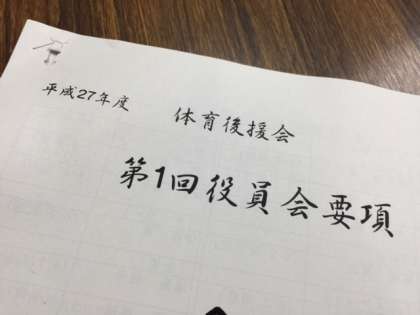 平成27年度 体育後援会
第1回役員会要項